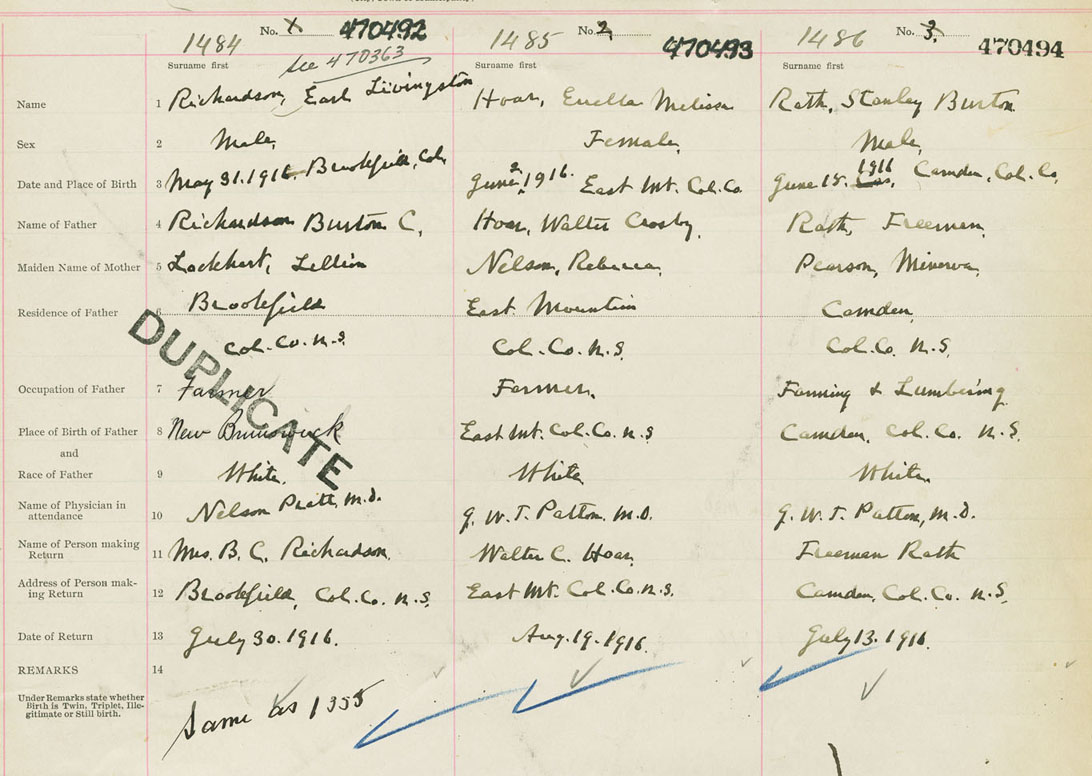 1484 No. X 470492 1485 No. 2 470493 1486 No. 3. 470494
see 470363
Surname first Surname first Surname first
Name 1 Richardson, Earl Livingston Hoar, Melissa Rath, Stanley Burton
Sex 2 Male, Female, Male,
Date and Place of Birth 3 May 31.1916. Brookfield, Col. June 2 1916. East Mt. Col. Co. June 15. 1916 Camden, Col. Co,
Name of Father 4 Richardson Burton C, Hoar, Walter Crosby, Rath, Freeman,
Maiden Name of Mother 5 Lockhart, Lillian Nelson, Rebecca, Pearson, Minerva,
Residence of Father 6 Brookfield East Mountain Camden,
Col. Co. N.S. Col. Co. N.S. Col. Co. N.S.
DUPLICATE
Occupation of Father 7 Farmer Farmer. Farming & Lumbering
Place of Birth of Father 8 New Brunswick East Mt. Col. Co. N.S Camden, Col. Co. N.S.
and
Race of Father 9 White. White White.
Name of Physician in
attendance 10 Nelson Pratt, M.D. G. W. T. Patton, M.D. G. W. T. Patton, M.D.
Name of Person making
Return 11 Mrs. B. C. Richardson, Walter C. Hoar, Freeman Rath
Address of Person mak-
ing Return 12 Brookfield, Col. Co. N.S. East Mt. Col. Co. N.S. Camden, Col. Co. N.S.
Date of Return 13 July 30. 1916. Aug. 19. 1916. July 13. 1916.
REMARKS 14
Under Remarks state whether
Birth is Twin, Triplet, Ille-
gitimate or Still birth.
Same as 1355